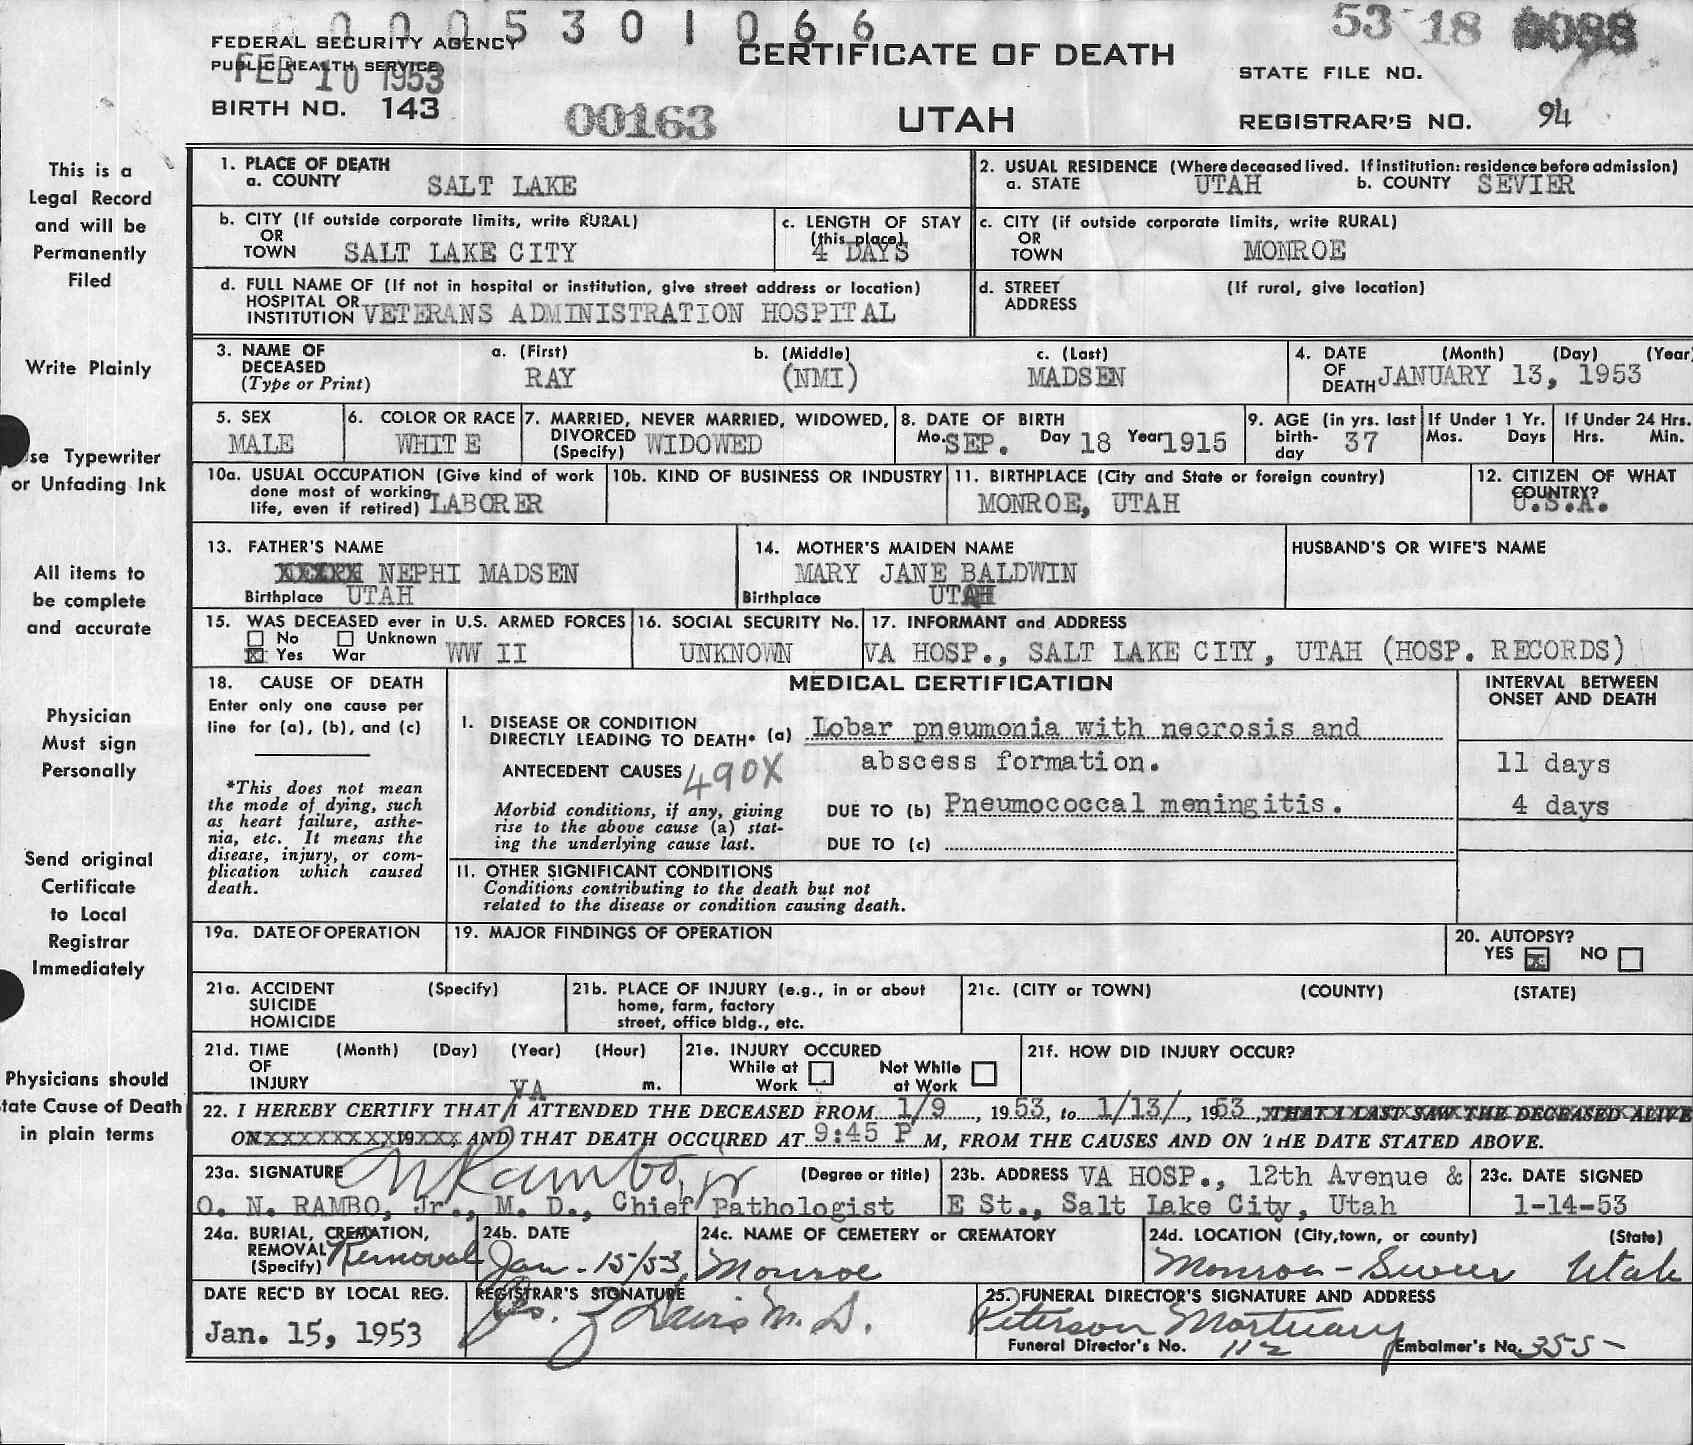 0005301066
53 18 0088
FEDERAL SECURITY AGENCY
PUBLIC HEALTH SERVICE
FEB 10 1953
CERTIFICATE OF DEATH
STATE FILE NO.
BIRTH NO. 143
00163
UTAH
REGISTRAR'S NO. 94
This is a
Legal Record
and will be
Permanently
Filed
Write Plainly
se Typewriter
or Unfading Ink
All items to
be complete
and accurate
Physician
Must sign
Personally
Send original
Certificate
to Local
Registrar
Immediately
Physicians should
tate Cause of Death
in plain terms
1. PLACE OF DEATH
a. COUNTY SALT LAKE
2. USUAL RESIDENCE (Where deceased lived. If institution: residence before admission)
a. STATE UTAH b. COUNTY SEVIER
b. CITY (If outside corporate limits, write RURAL)
OR
TOWN SALT LAKE CITY
c. LENGTH OF STAY
(this place)
4 DAYS
c. CITY (if outside corporate limits, write RURAL)
OR
TOWN MONROE
d. FULL NAME OF (If not in hospital or institution, give street address or location)
HOSPITAL OR
INSTITUTION VETERANS ADMINISTRATION HOSPITAL
d. STREET (If rural, give location)
ADDRESS
3. NAME OF a. (First) b. (Middle) c. (Last)
DECEASED
(Type or Print) RAY (NMI) MADSEN
4. DATE (Month) (Day) (Year
OF
DEATH JANUARY 13, 1953
5. SEX
MALE
6. COLOR OR RACE
WHITE
7. MARRIED, NEVER MARRIED, WIDOWED,
DIVORCED
(Specify) WIDOWED
8. DATE OF BIRTH
Mo. SEP. Day 18 Year 1915
9. AGE (in yrs. last
birth-
day 37
If Under 1 Yr.
Mos. Days
If Under 24 Hrs.
Hrs. Min.
10a. USUAL OCCUPATION (Give kind of work
done most of working
life, even if retired) LABORER
10b. KIND OF BUSINESS OR INDUSTRY
11. BIRTHPLACE (City and State or foreign country)
MONROE, UTAH
12. CITIZEN OF WHAT
COUNTRY?
U.S.A.
13. FATHER'S NAME
XXXXX NEPHI MADSEN
Birthplace UTAH
14. MOTHER'S MAIDEN NAME
MARY JANE BALDWIN
Birthplace UTAH
HUSBAND'S OR WIFE'S NAME
15. WAS DECEASED ever in U.S. ARMED FORCES
No Unknown
Yes War WW II
16. SOCIAL SECURITY No.
UNKNOWN
17. INFORMANT and ADDRESS
VA HOSP., SALT LAKE CITY, UTAH (HOSP. RECORDS)
18. CAUSE OF DEATH
Enter only one cause per
line for (a), (b), and (c)
*This does not mean
the mode of dying, such
as heart failure, asthe-
nia, etc. It means the
disease, injury, or com-
plication which caused
death.
MEDICAL CERTIFICATION
INTERVAL BETWEEN
ONSET AND DEATH
I. DISEASE OR CONDITION
DIRECTLY LEADING TO DEATH* (a) Lobar pneumonia with necrosis and
abscess formation. 11 days
ANTECEDENT CAUSES 490X
Morbid conditions, if any, giving
rise to the above cause (a) stat-
ing the underlying cause last.
DUE TO (b) Pneumococcal meningitis. 4 days
DUE TO (c)
II. OTHER SIGNIFICANT CONDITIONS
Conditions contributing to the death but not
related to the disease or condition causing death.
19a. DATE OF OPERATION
19. MAJOR FINDINGS OF OPERATION
20. AUTOPSY?
YES NO
21a. ACCIDENT (Specify)
SUICIDE
HOMICIDE
21b. PLACE OF INJURY (e.g., in or about
home, farm, factory
street, office bldg., etc.
21c. (CITY or TOWN) (COUNTY) (STATE)
21d. TIME (Month) (Day) (Year) (Hour)
OF
INJURY m.
21e. INJURY OCCURED
While at Work
Not While at Work
21f. HOW DID INJURY OCCUR?
VA
22. I HEREBY CERTIFY THAT I ATTENDED THE DECEASED FROM 1/9, 1953, to 1/13/, 1953, THAT I LAST SAW THE DECEASED ALIVE
ON XXXXXXXX 19XXX AND THAT DEATH OCCURED AT 9:45 P M, FROM THE CAUSES AND ON THE DATE STATED ABOVE.
23a. SIGNATURE N Rambo, Jr (Degree or title)
O. N. RAMBO, Jr., M. D., Chief Pathologist
23b. ADDRESS VA HOSP., 12th Avenue &
E St., Salt Lake City, Utah
23c. DATE SIGNED
1-14-53
24a. BURIAL, CREMATION,
REMOVAL
(Specify) Removal
24b. DATE
Jan. 15/53,
24c. NAME OF CEMETERY OR CREMATORY
Monroe
24d. LOCATION (City, town, or county) (State)
Monroe - Sevier Utah
DATE REC'D BY LOCAL REG.
Jan. 15, 1953
REGISTRAR'S SIGNATURE
Geo. Z Davis M.D.
25. FUNERAL DIRECTOR'S SIGNATURE AND ADDRESS
Peterson Mortuary
Funeral Director's No. 112 Embalmer's No. 355